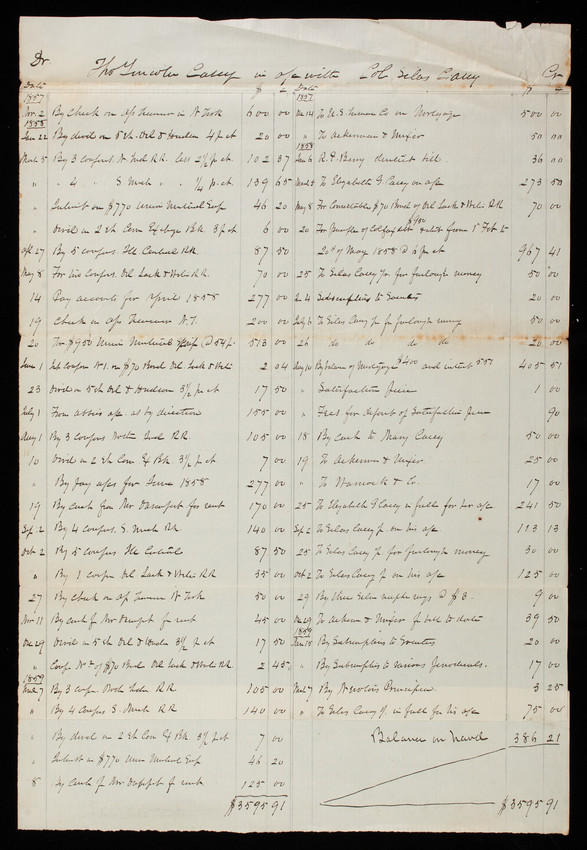 Dr Thos Lincoln Casey in a/c with Col Silas Casey Cr
Date $ c
1857
Nov. 2 By Check on Ass Treasurer in N York 600 00
1858
Jan 22 By divd on 5 sh. Del & Hudson 4 p ct 20 00
March 5 By 3 coupns N. Ind R.R. less 2½ p ct. 102 37
" " 4 " S. Mich " " ¼ p. ct. 139 65
" Interest on $770 Union Mutual Scrip 46 20
" Divid on 2 sh Com Exchge Bk. 3 p ct 6 00
Apl. 27 By 5 coupns. Ill Central R.R. 87 50
May 8 For two Coupns. Del Lack & Westn R.R. 70 00
14 Pay accounts for April 1858 277 00
19 Check on Ass Treasurer N.Y. 200 00
20 For $950 Union Mutual Scrip @ 54 p. 513 00
June 1 Int coupon No 1. on $70 Bond Del. Lack & Westn 2 04
23 Divid on 5 sh Del & Hudson 3½ p ct 17 50
July 1 From a/c as by direction 155 00
Aug 1 By 3 coupns North Ind R.R. 105 00
10 Divid on 2 sh Com Ex Bk 3½ p ct 7 00
" By pay a/cs for June 1858 277 00
19 By Cash from Mr Davenport for rent 170 00
Sep. 2 By 4 coupns. S. Mich RR 140 00
Oct. 2 By 5 coupns Ill Central 87 50
" By 1 coupn Del Lack & Westn R.R 35 00
27 By Check on Ass Treasurer N York 50 00
Nov 11 By cash f. Mr Davenpt for rent 45 00
Dec 29 Divid on 5 sh Del & Hudson 3½ p ct 17 50
" Coup. No 2 of $70 Bond Del Lack & Westn RR. 2 45
1859
March 7 By 3 coupn. North Indn R.R. 105 00
" By 4 Coupns S. Mich R.R 140 00
" By divid on 2 sh Com Ex Bk. 3½ p ct 7 00
" Interest on $770 Union Mutual Scrip 46 20
8 By Cash f. Mr Davenpt for rent 125 00
$3595 91
Date $ c
1857
Dec 14 To U.S. Co on Mortgage 500 00
" To Ackerman & Mixer 50 00
1858
Jan 6 R. P. Berry dentist bill. 36 00
March 8 To Elizabeth G Casey on a/c 273 50
May 8 For Convertible $70 Bond of Del Lack & Westn RR 70 00
20 For purchase of $900 & int from 1st Feb to
20th of May 1858 @ p ct 967 41
25 To Silas Casey Jr. for furlough money 50 00
24 Subscription to 20 00
July 6 To Silas Casey Jr for furlough money 50 00
26 do do do do 20 00
Aug 10 By balance of Mortgage $400 and interest 5 51 405 51
" Satisfaction piece 1 00
" Fees for deposit of Satisfaction piece 90
18 By Cash to Mary Casey 50 00
19 To Ackerman & Mixer 25 00
" To Warnock & Co. 17 00
25 To Elizabeth G Casey in full for her a/c 241 50
Sep 2 To Silas Casey Jr on his a/c 113 13
25 To Silas Casey Jr. for furlough money 30 00
Oct 2 To Silas Casey Jr on his a/c 125 00
29 By three rings @ $3. 9 00
Dec 29 To Ackerman & Mixer f bill to date 39 50
1859
Jan 18 By Subscription to 20 00
" By Subscriptn to various Periodicals. 17 00
March 7 By Napolis Principia 3 25
" To Silas Casey Jr. in full for his a/c 75 00
Balance on hand 386 21
$3595 91